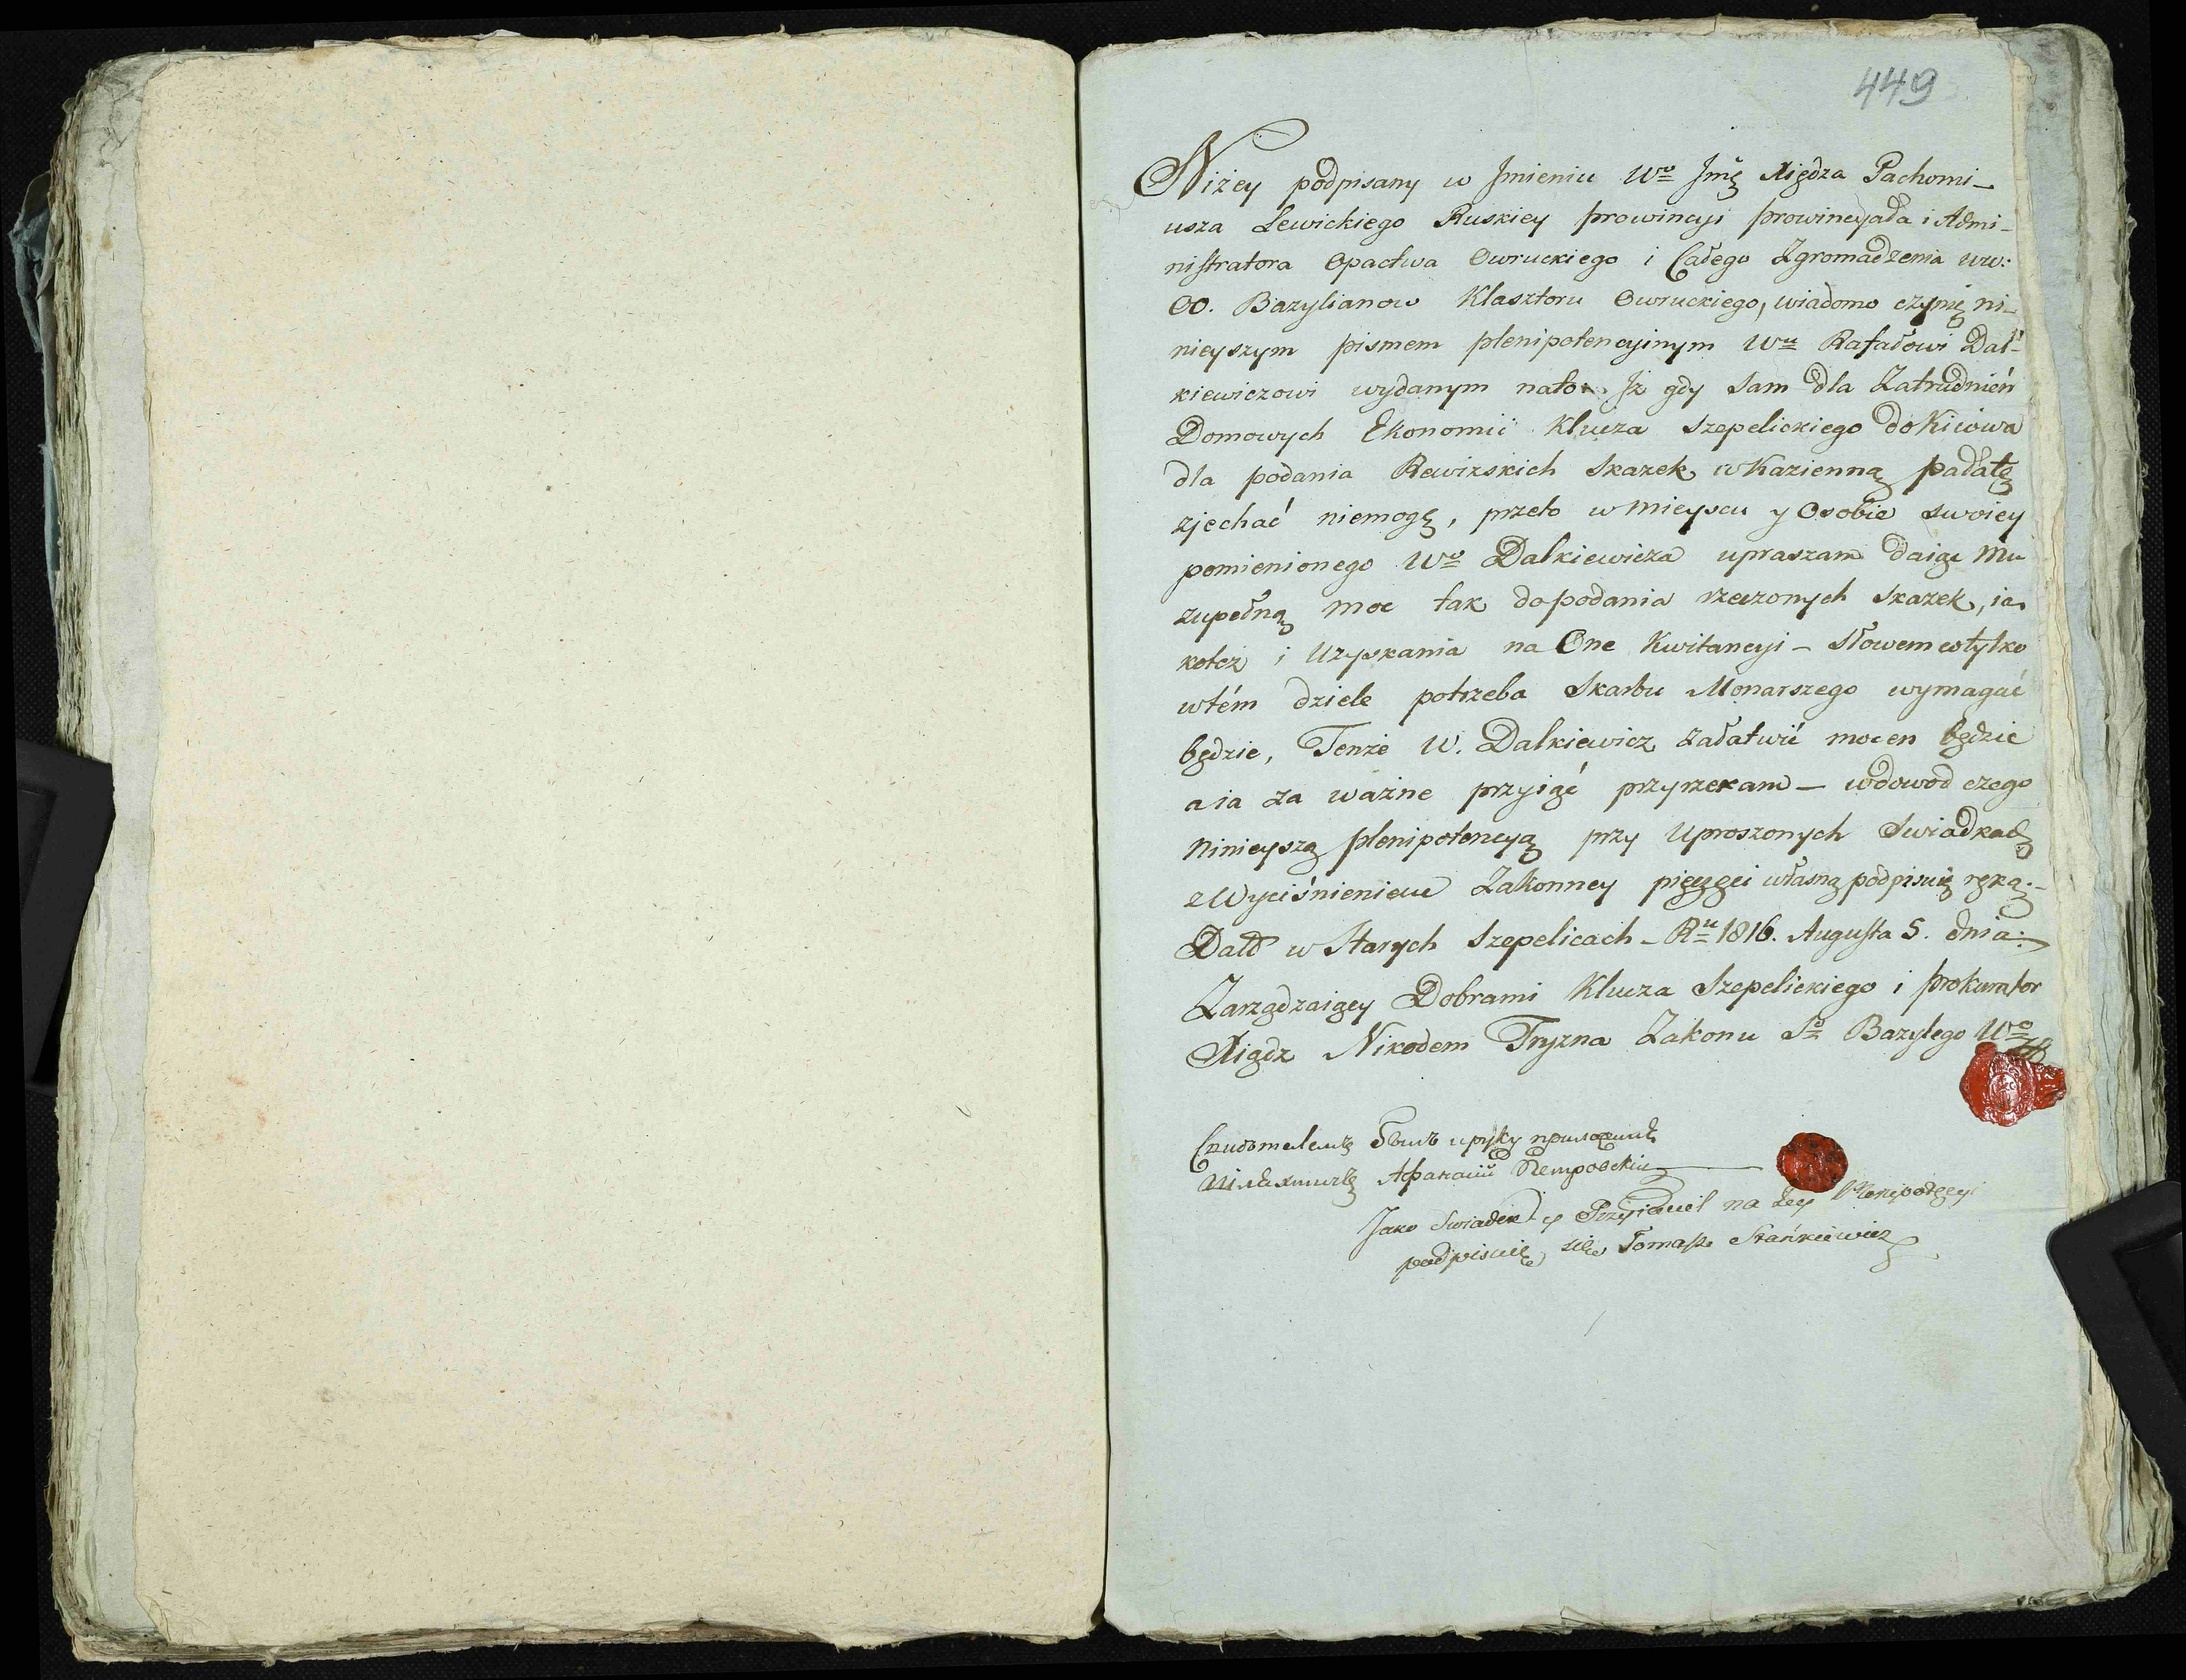 449
Niżey podpisany w Jmieniu Wo Jmę Xiędza Pachomi-
usza Lewickiego Ruskiey prowincyi prowincyała i Admi-
nistratora Opactwa Owruckiego i Całego Zgromadzenia ww:
OO. Bazylianow Klasztoru Owruckiego, wiadomo czynię ni-
nieyszym pismem plenipotencyinym Wu Rafałowi Dal-
kiewiczowi wydanym nato Jż gdy Sam dla Zatrudnień
Domowych Ekonomii Klucza Szepelickiego do Kiiowa
dla podania Rewizskich Skazek w Kazienną pałatę
zjechać niemogę, przeto w mieyscu y Osobie swoiey
pomienionego Wo Dalkiewicza upraszam daiąc Mu
zupełną moc tak do podania rzeczonych Skazek, ia
koteż i Uzyskania na One Kwitancyi - Słowem cotylko
wtém dziele potrzeba Skarbu Monarszego wymagać
będzie, Tenże W. Dalkiewicz załatwić mocen będzie
a ia za ważne przyiąć przyrzekam - wdowod czego
Ninieyszą plenipotencyą przy Uproszonych Swiadkach
z Wyciśnieniem Zakonney pieczęci własną podpisuię ręką.-
Datt w Starych Szepelicach - Ru 1816. Augusta 5. dnia:
Zarządzaiący Dobrami Klucza Szepelickiego i prokurator
Xiądz Nikodem Tryzna Zakonu So Bazylego Wo
Свидетелемъ былъ и руку приложилъ
Шляхтичъ Афанасій Петровскій
Jako Swiadek y Przyiaciel na tey Plenipotęcyi
podpisuię się Tomasz Stańkiewicz